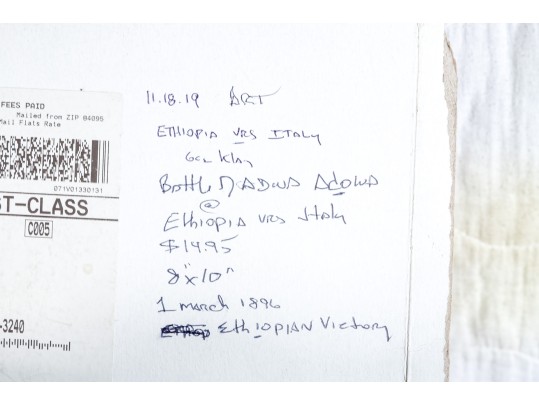 FEES PAID
Mailed from ZIP 84095
Mail Flats Rate
071V01330131
ST-CLASS
C005
-3240
11.18.19 ART
ETHIOPIA VRS ITALY
Battle ADWA ADOWA
@
Ethiopia VRS Italy
$14.95
8"x10"
1 march 1896
EthIOPIAN Victory